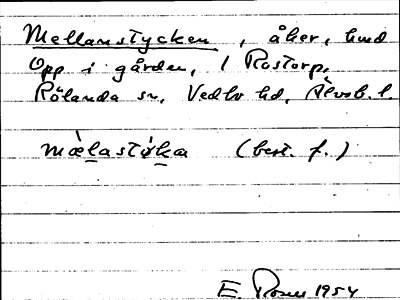 Mellanstycken, åker, hmd
Upp i gården, 1 Rostorp,
Rölanda sn, Vedbo hd, Älvsb. l.
mæ̀lastýka (best. f.)
E. Rosen 1954